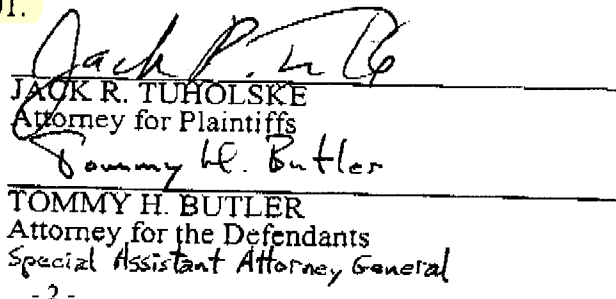 01.
Jack
JACK R. TUHOLSKE
Attorney for Plaintiffs
Tommy H. Butler
TOMMY H. BUTLER
Attorney for the Defendants
Special Assistant Attorney General
- 2 -